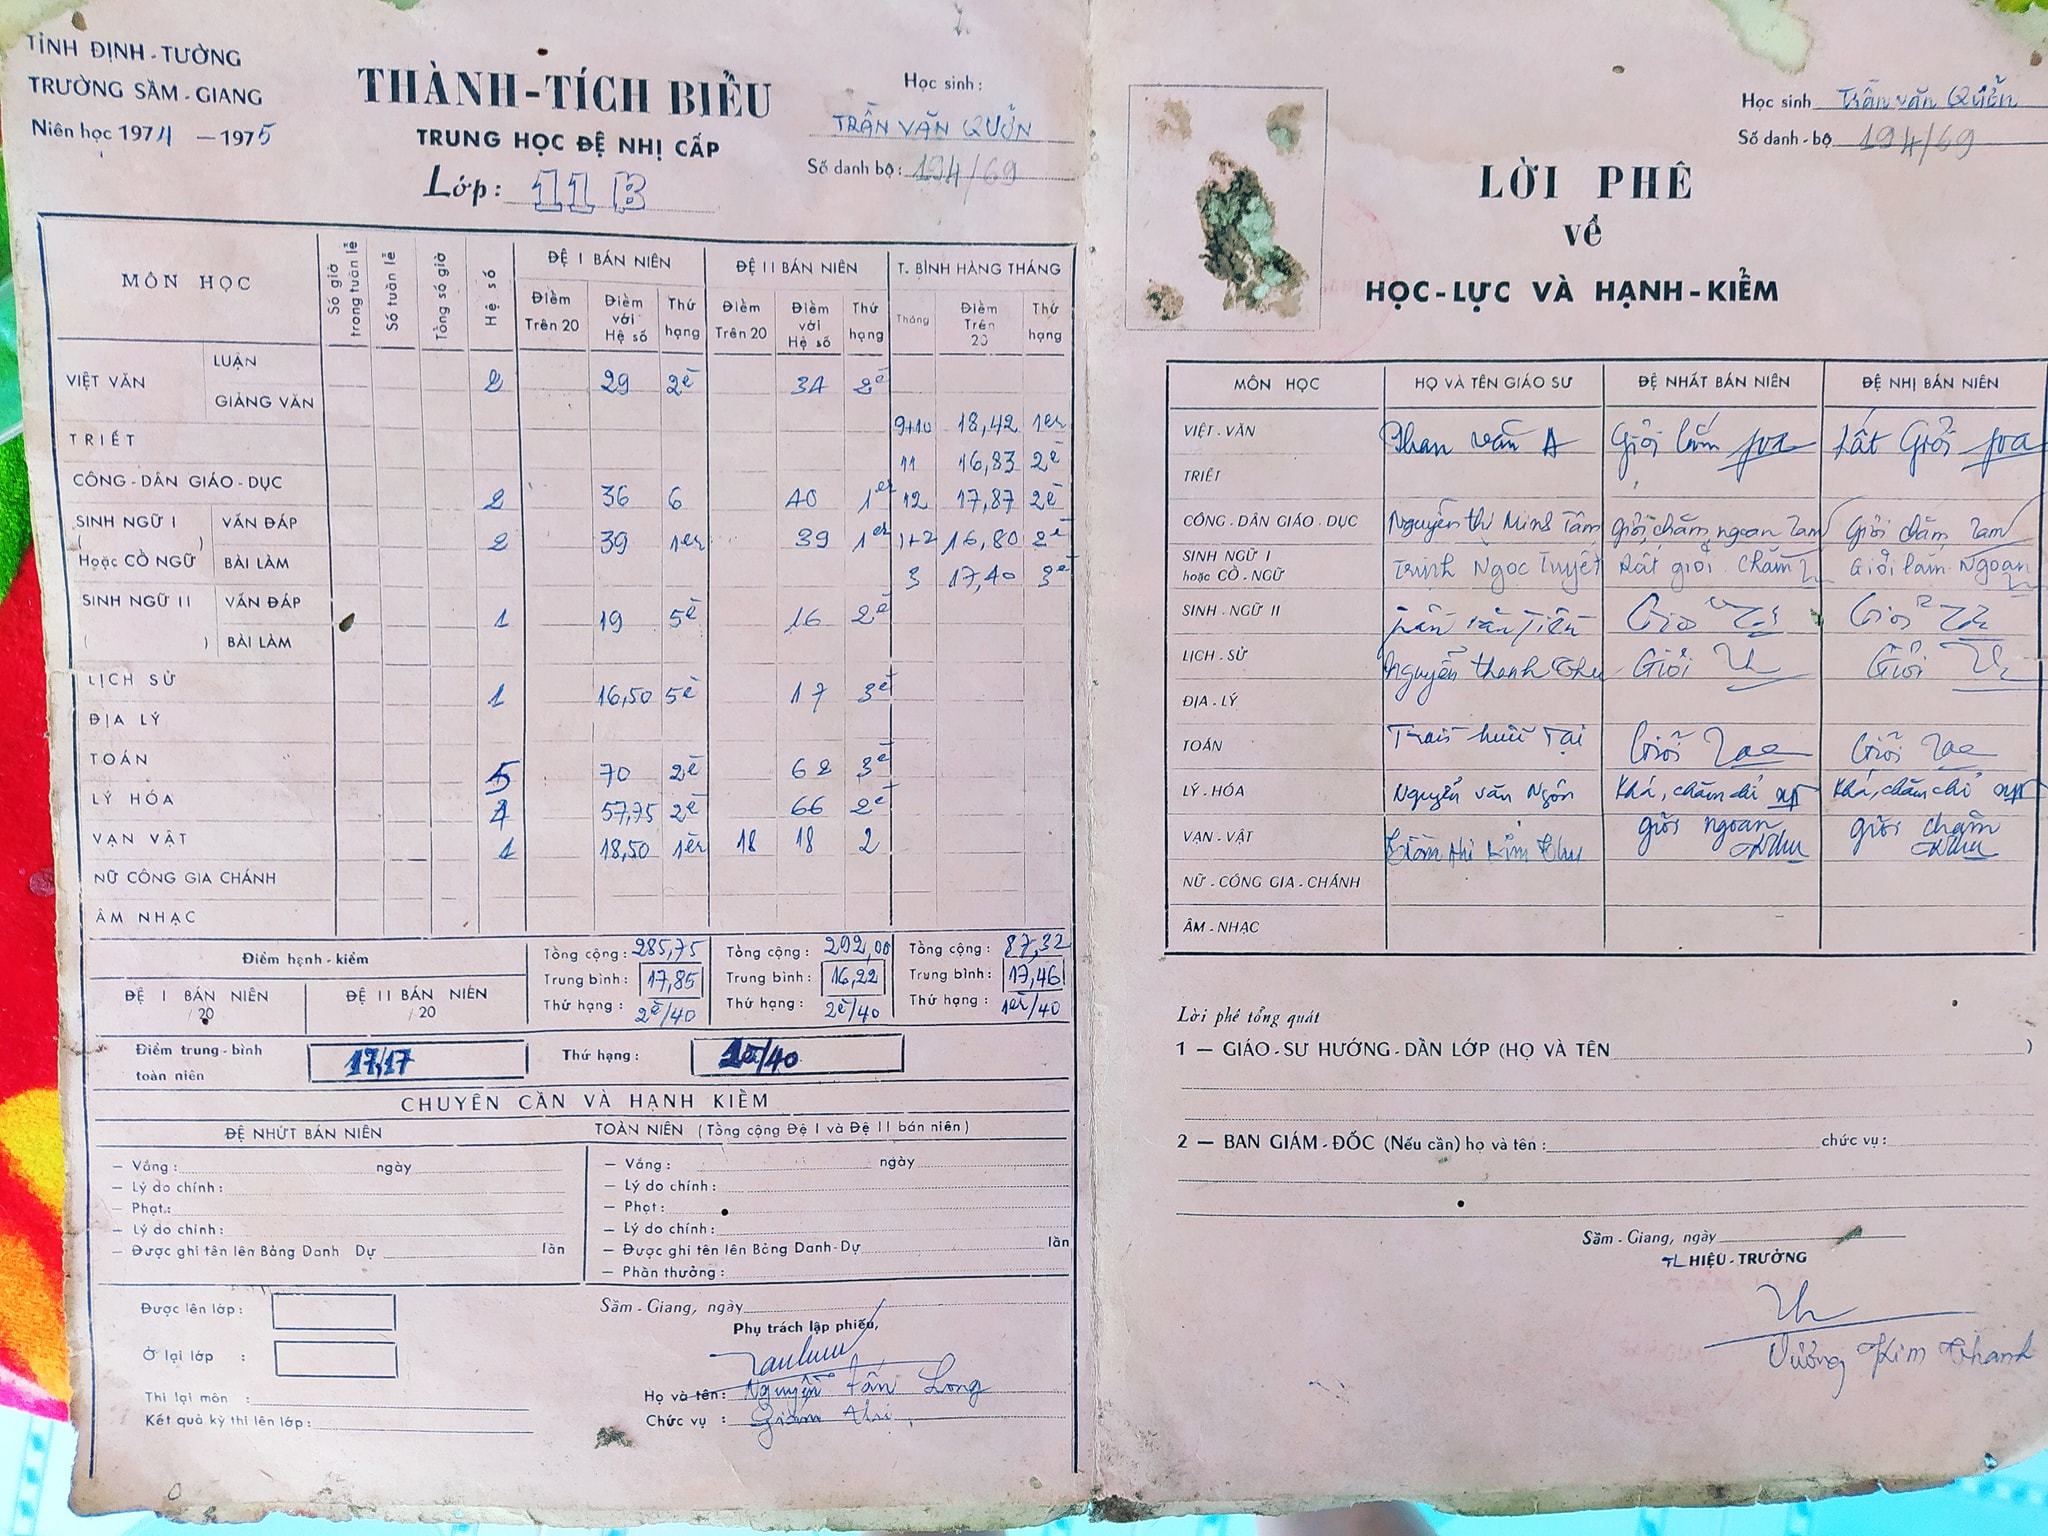 TỈNH ĐỊNH-TƯỜNG
TRƯỜNG SẦM-GIANG
Niên học 1974 - 1975
THÀNH-TÍCH BIỂU
TRUNG HỌC ĐỆ NHỊ CẤP
Lớp: 11 B
Học sinh:
TRẦN VĂN QUỞN
Số danh bộ: 194/69
MÔN HỌC
Số giờ trong tuần lễ
Số tuần lễ
Tổng số giờ
Hệ số
ĐỆ I BÁN NIÊN
ĐỆ II BÁN NIÊN
T. BÌNH HÀNG THÁNG
Điểm Trên 20
Điểm với Hệ số
Thứ hạng
Điểm Trên 20
Điểm với Hệ số
Thứ hạng
Tháng
Điểm Trên 20
Thứ hạng
VIỆT VĂN
LUẬN
GIẢNG VĂN
2 29 2è 34 2è
9+10 18,42 1er
TRIẾT
11 16,83 2è
CÔNG-DÂN GIÁO-DỤC
2 36 6 40 1er 12 17,87 2è
SINH NGỮ I
( )
Hoặc CỔ NGỮ
VẤN ĐÁP
BÀI LÀM
2 39 1er 39 1er 1+2 16,80 2è
3 17,40 3è
SINH NGỮ II
( )
VẤN ĐÁP
BÀI LÀM
1 19 5è 16 2è
LỊCH SỬ
1 16,50 5è 17 3è
ĐỊA LÝ
TOÁN
5 70 2è 62 3è
LÝ HÓA
4 57,75 2è 66 2è
VẠN VẬT
1 18,50 1er 18 18 2
NỮ CÔNG GIA CHÁNH
ÂM NHẠC
Điểm hạnh-kiểm
ĐỆ I BÁN NIÊN
/20
ĐỆ II BÁN NIÊN
/20
Tổng cộng: 285,75
Trung bình: 17,85
Thứ hạng: 2è/40
Tổng cộng: 292,00
Trung bình: 16,22
Thứ hạng: 2è/40
Tổng cộng: 87,32
Trung bình: 17,46
Thứ hạng: 1er/40
Điểm trung-bình toàn niên
17,17
Thứ hạng:
/40
CHUYÊN CẦN VÀ HẠNH KIỂM
ĐỆ NHỨT BÁN NIÊN
TOÀN NIÊN (Tổng cộng Đệ I và Đệ II bán niên)
— Vắng: ngày
— Lý do chính:
— Phạt:
— Lý do chính:
— Được ghi tên lên Bảng Danh Dự lần
— Vắng: ngày
— Lý do chính:
— Phạt:
— Lý do chính:
— Được ghi tên lên Bảng Danh-Dự lần
— Phần thưởng:
Được lên lớp:
Ở lại lớp :
Thi lại môn :
Kết quả kỳ thi lên lớp:
Sầm-Giang, ngày
Phụ trách lập phiếu,
Họ và tên: Nguyễn Tấn Long
Chức vụ : Giám thị
Học sinh Trần Văn Quởn
Số danh-bộ 194/69
LỜI PHÊ
về
HỌC-LỰC VÀ HẠNH-KIỂM
MÔN HỌC
HỌ VÀ TÊN GIÁO SƯ
ĐỆ NHẤT BÁN NIÊN
ĐỆ NHỊ BÁN NIÊN
VIỆT-VĂN
Phan văn A
Giỏi lắm
Rất Giỏi
TRIẾT
CÔNG-DÂN GIÁO-DỤC
Nguyễn thị Minh Tâm
giỏi, chăm, ngoan Tam
Giỏi chăm Tam
SINH NGỮ I
hoặc CỔ-NGỮ
Trịnh Ngọc Tuyết
Rất giỏi. Chăm
Giỏi lắm. Ngoan
SINH-NGỮ II
Trần văn Tiên
Giỏi
Giỏi
LỊCH-SỬ
Nguyễn thanh Thu
Giỏi
Giỏi
ĐỊA-LÝ
TOÁN
Trần hữu Tại
Giỏi
Giỏi
LÝ-HÓA
Nguyễn văn Ngôn
Khá, chăm chỉ
Khá, chăm chỉ
VẠN-VẬT
thị Kim Thu
giỏi ngoan
giỏi chăm
NỮ-CÔNG GIA-CHÁNH
ÂM-NHẠC
Lời phê tổng quát
1 — GIÁO-SƯ HƯỚNG-DẪN LỚP (HỌ VÀ TÊN )
2 — BAN GIÁM-ĐỐC (Nếu cần) họ và tên: chức vụ:
Sầm-Giang, ngày
TL HIỆU-TRƯỞNG
Vương Kim Thanh